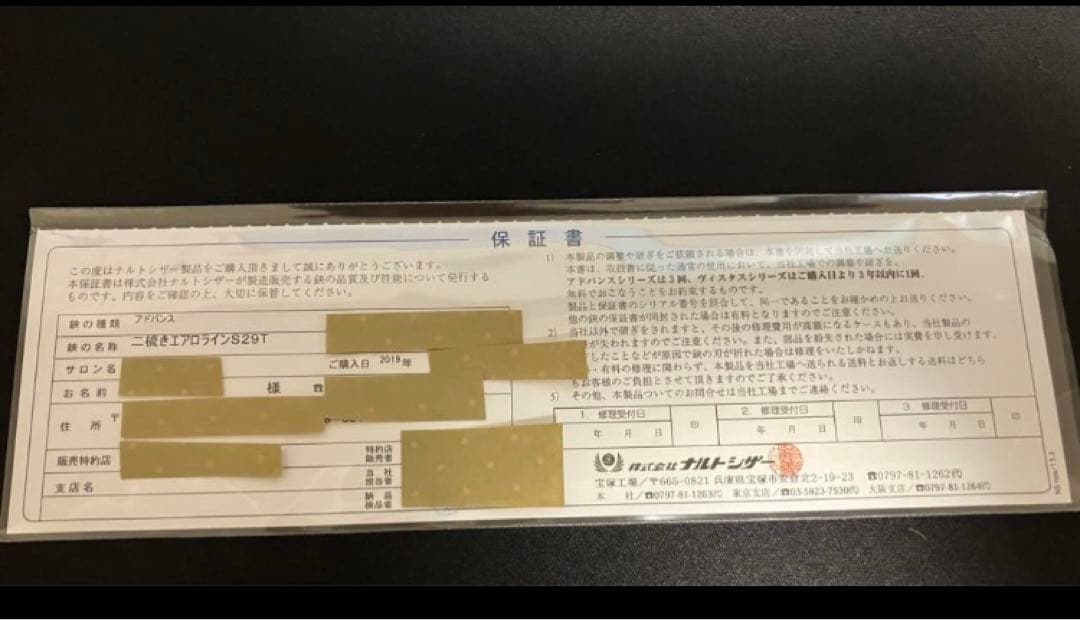 保証書
この度はナルトシザー製品をご購入頂きまして誠にありがとうございます。
本保証書は株式会社ナルトシザーが製造販売する鋏の品質及び性能について発行する
ものです。内容をご確認の上、大切に保管してください。
鋏の種類 アドバンス
鋏の名称 二硫きエアロラインS29T
サロン名 ご購入日 2019年
お名前 様 ☎
住所 〒
販売特約店 特約店販売者
支店名 当社担当者
納品検品者
1) 本製品の調整や研ぎをご依頼される場合は、本書を同封して当社工場へお送りください。
本書は、取扱書に従った通常の使用において、当社工場での調整や研ぎを、
アドバンスシリーズは5回、ヴィスタスシリーズはご購入日より3年以内に1回、
無料でおこなうことをお約束するものです。
製品と保証書のシリアル番号を照合して、同一であることをお確かめの上お送りください。
他の鋏の保証書が同封された場合は有料となりますのでご注意ください。
2) 当社以外で研ぎをされますと、その後の修理費用が高額になるケースもあり、当社製品の
が失われますのでご注意ください。また、部品を紛失された場合には実費を申し受けます。
したことなどが原因で鋏の刃が折れた場合は修理をいたしかねます。
・有料の修理に関わらず、本製品を当社工場へ送られる送料とお返しする送料はどちら
もお客様のご負担とさせて頂きますのでご了承ください。
5) その他、本製品についてのお問合せは当社工場までご連絡ください。
1. 修理受付日 印 2. 修理受付日 印 3. 修理受付日 印
年 月 日 年 月 日 年 月 日
株式会社ナルトシザー
宝塚工場／〒665-0821 兵庫県宝塚市安倉北2-19-23 ☎0797-81-1262代
本 社／☎0797-81-1263代 東京支店／☎03-5823-7530代 大阪支店／☎0797-81-1264代